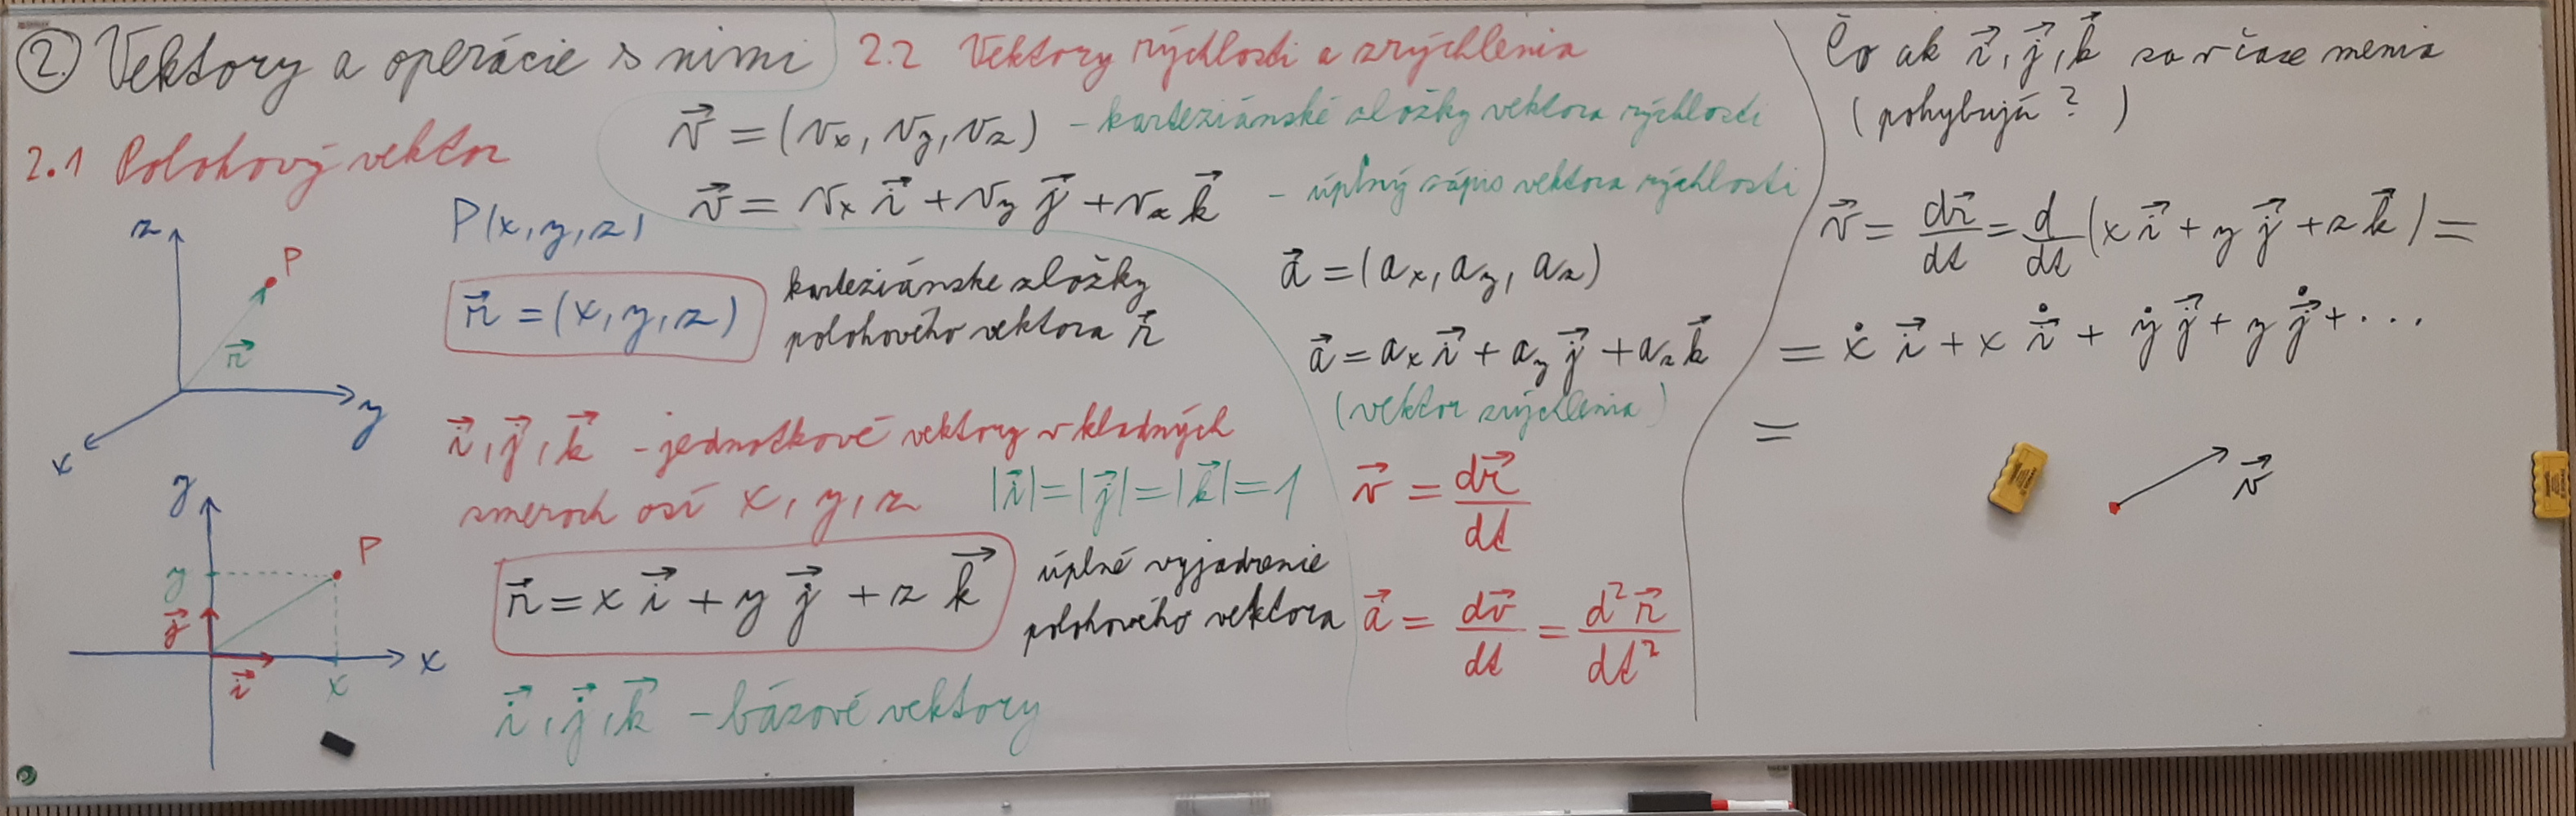 ② Vektory a operácie s nimi
2.1 Polohový vektor
z
P
r⃗
y
x
P(x, y, z)
r⃗ = (x, y, z)
karteziánske zložky
polohového vektora r⃗
i⃗, j⃗, k⃗ - jednotkové vektory v kladných
smeroch osí x, y, z
|i⃗| = |j⃗| = |k⃗| = 1
y
P
y
j⃗
i⃗
x
x
r⃗ = x i⃗ + y j⃗ + z k⃗
úplné vyjadrenie
polohového vektora
i⃗, j⃗, k⃗ - bázové vektory
2.2 Vektory rýchlosti a zrýchlenia
v⃗ = (vx, vy, vz) - karteziánské zložky vektora rýchlosti
v⃗ = vx i⃗ + vy j⃗ + vz k⃗ - úplný zápis vektora rýchlosti
a⃗ = (ax, ay, az)
a⃗ = ax i⃗ + ay j⃗ + az k⃗
(vektor zrýchlenia)
v⃗ = dr⃗/dt
a⃗ = dv⃗/dt = d²r⃗/dt²
Čo ak i⃗, j⃗, k⃗ sa v čase menia
(pohybujú?)
v⃗ = dr⃗/dt = d/dt (x i⃗ + y j⃗ + z k⃗) =
= ẋ i⃗ + x i⃗̇ + ẏ j⃗ + y j⃗̇ + ...
=
v⃗